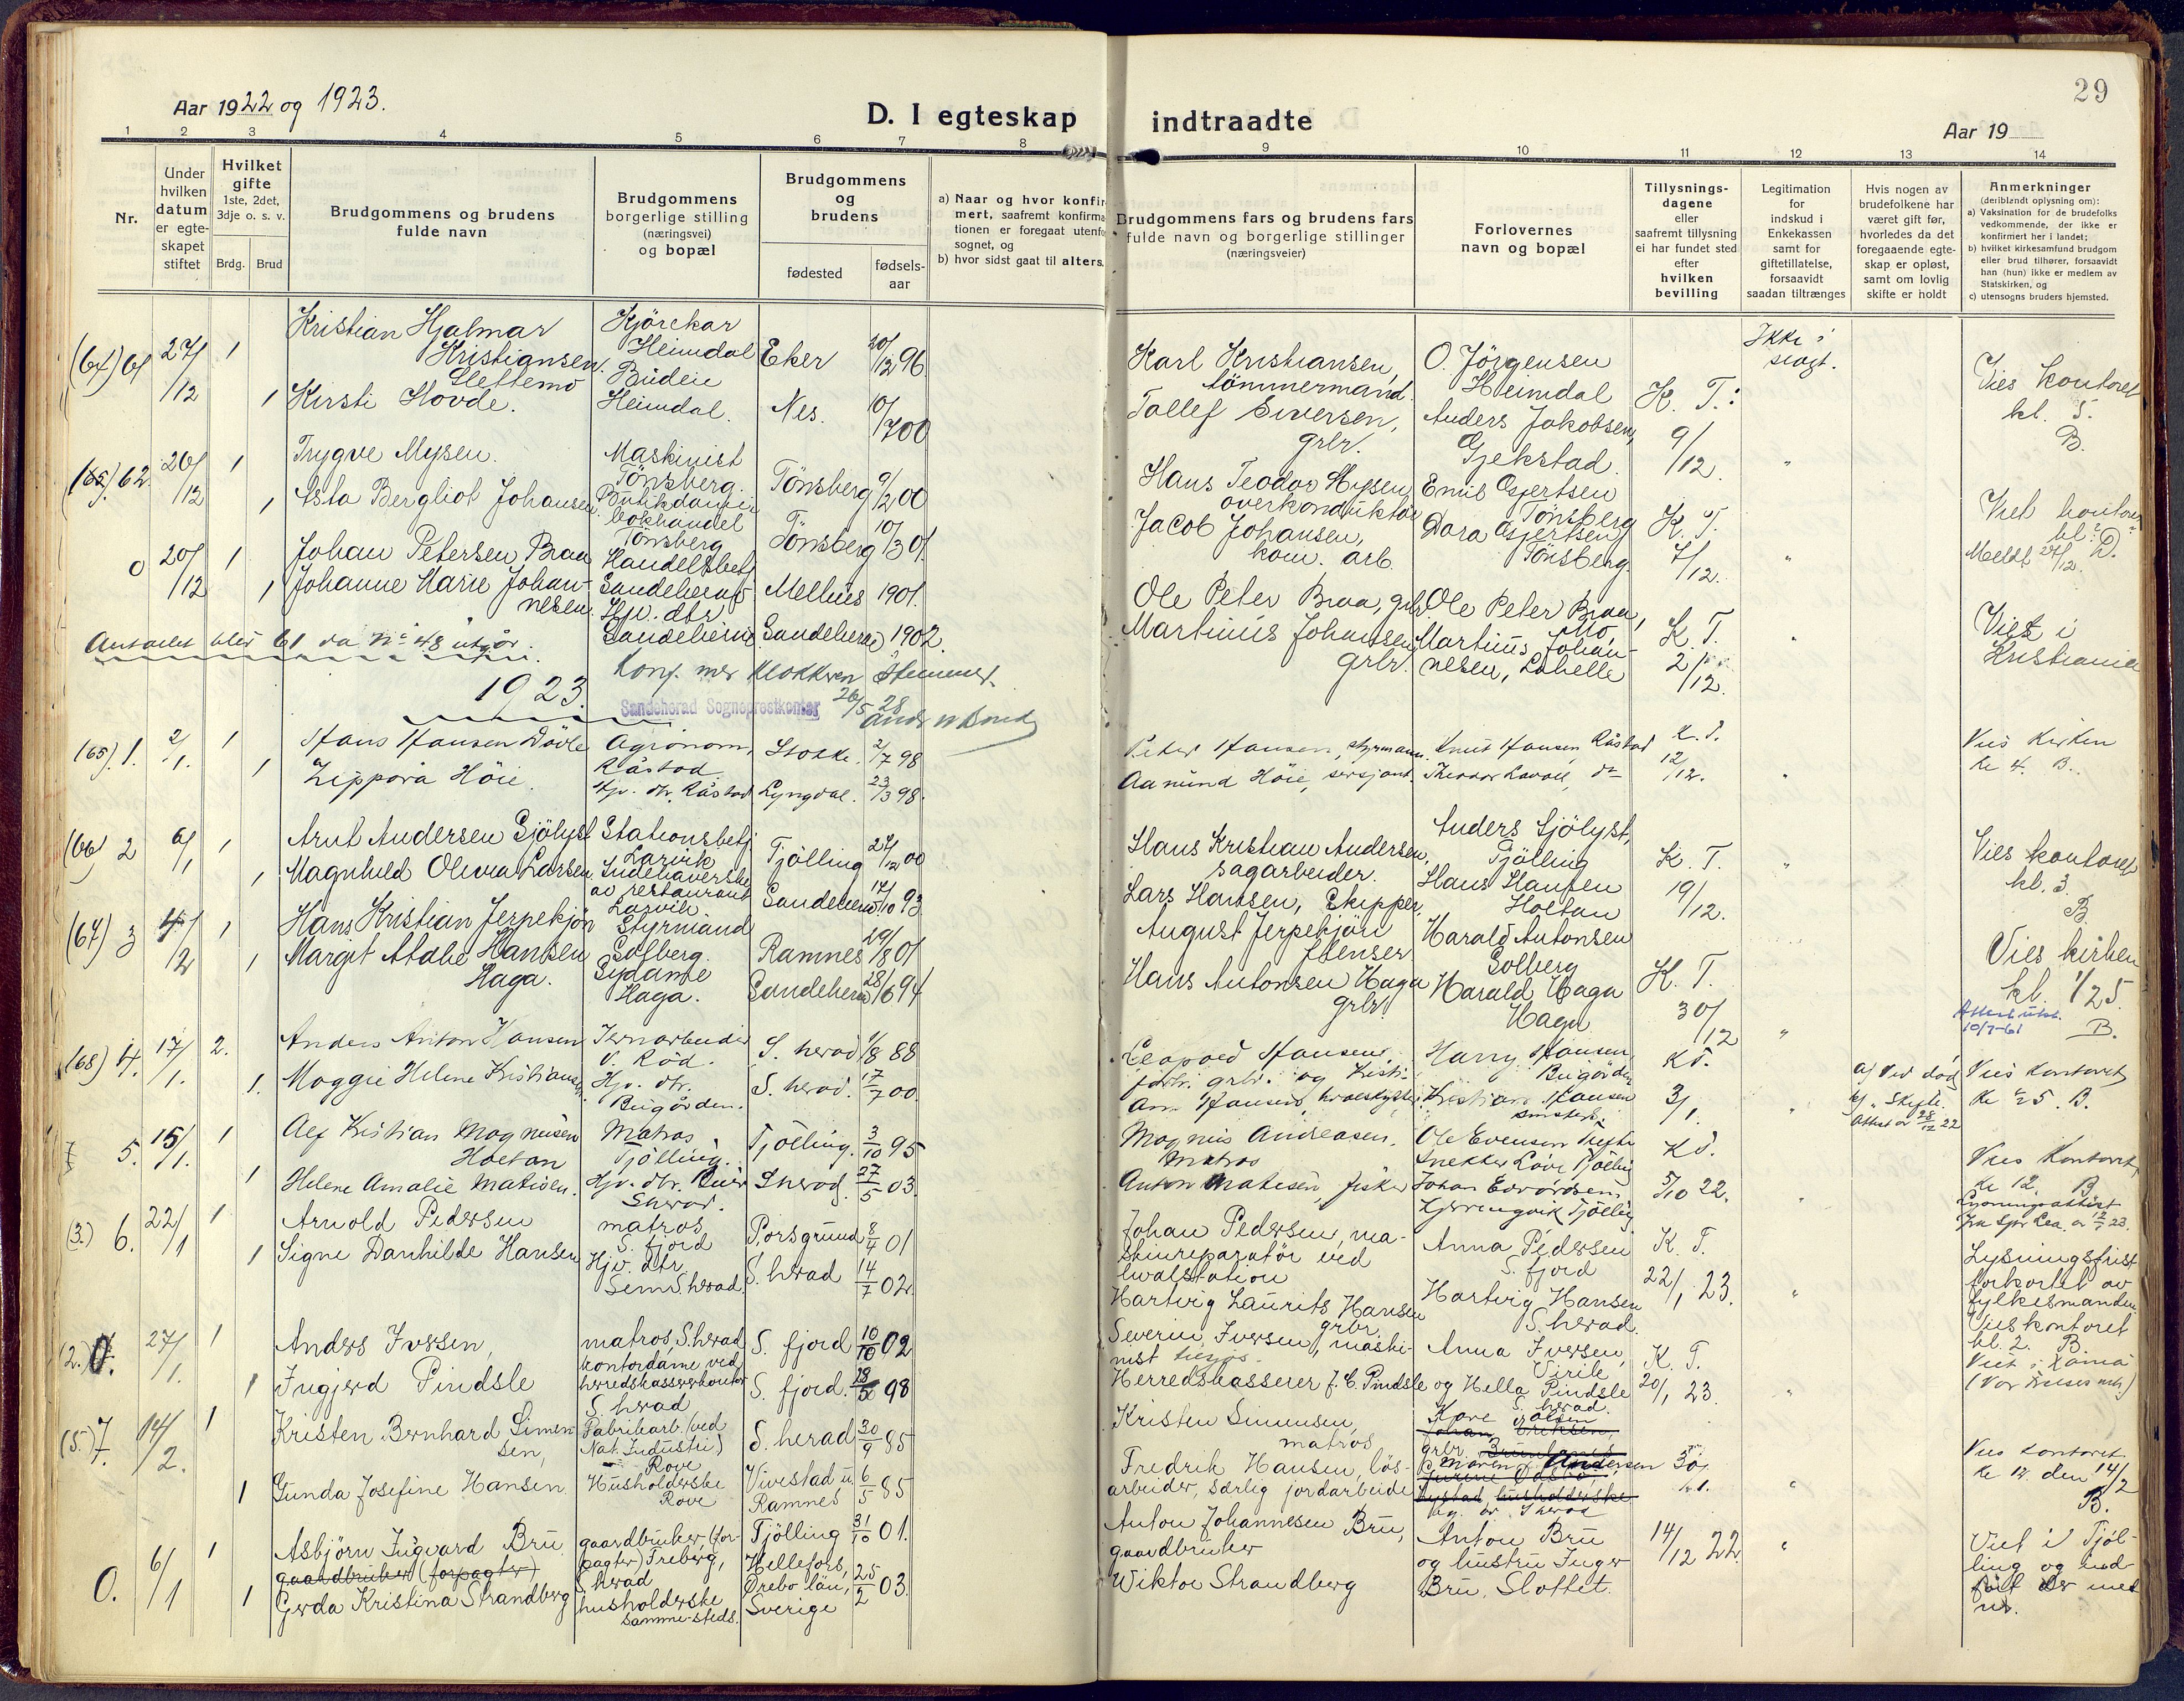 29
Aar 1922 og 1923.
D. I egteskap indtraadte
Aar 19
1 2 3 4 5 6 7 8 9 10 11 12 13 14
Nr.
Under hvilken datum er egteskapet stiftet
Hvilket gifte
1ste, 2det, 3dje o. s. v.
Brdg. Brud
Brudgommens og brudens fulde navn
Brudgommens borgerlige stilling (næringsvei) og bopæl
Brudgommens og brudens
fødested
fødsels-
aar
a) Naar og hvor konfir
mert, saafremt konfirma
tionen er foregaat utenfo
sognet, og
b) hvor sidst gaat til alters.
Brudgommens fars og brudens fars
fulde navn og borgerlige stillinger
(næringsveier)
Forlovernes
navn og bopæl
Tillysnings-
dagene
eller
saafremt tillysning
ei har fundet sted
efter
hvilken
bevilling
Legitimation
for
indskud i
Enkekassen
samt for
giftetillatelse,
forsaavidt
saadan tiltrænges
Hvis nogen av
brudefolkene har
været gift før,
hvorledes da det
foregaaende egte-
skap er opløst,
samt om lovlig
skifte er holdt
Anmerkninger
(deriblandt oplysning om):
a) Vaksination for de brudefolks
vedkommende, der ikke er
konfirmert her i landet;
b) hvilket kirkesamfund brudgom
eller brud tilhører, forsaavidt
han (hun) ikke er medlem av
Statskirken, og
c) utensogns bruders hjemsted.
(64) 61 27/12 1 Kristian Hjalmar
Kristiansen
Slettemo
Kjørekar
Heimdal
Eker 20/12 96
Karl Kristiansen,
tømmermand.
O. Jörgensen
Heimdal
K. T.:
9/12.
Ikke i
slagt.
Vies kontoret
kl. 5.
B.
1 Kirsti Hovde.
Budeie
Heimdal.
Nes. 10/7 00
Tollef Siversen,
grbr.
Anders Jakobsen,
Gjekstad.
62 26/12 1 Trygve Mysen.
Maskinist
Tönsberg.
Tönsberg 9/2 00
Hans Teodor Mysen
overkonduktör
Emil Gjertsen
Tönsberg
K. T.
7/12.
1 Asta Bergliot Johansen
Butikdame i
bokhandel
Tönsberg
Tönsberg 10/3 01
Jacob Johansen,
kom. arb.
Dora Gjertsen,
Tönsberg.
Meldt 27/12.
0 20/12 1 Johan Petersen Braa
Handelsbetj.
Sandeherad
Melhus 1901.
Ole Peter Braa, grbr.
Ole Peter Braa,
Mo,
K. T.
2/12.
Viet i
Kristiania
1 Johanne Marie Johan-
nesen.
Hjv. dtr.
Sandeherad
Sandeherad 1902.
Martinius Johansen
grbr.
Martinius Johan-
nesen, Labelle
Antallet blir 61 da No 48 utgår.
Konf. mer klokkeren Stemmer.
1923.
Sandeherad Sogneprestkontor
26/5 28
(65). 1. 2/1. 1 Hans Hansen Døvle
Agronom,
Råstad.
Stokke. 2/7 98
Peter Hansen, styrmann.
Knut Hansen, Råstad
K. T.
12/12.
Vies Kirken
Kl 4. B.
1 Zippora Höie.
Hjv. dtr. Råstad
Lyngdal. 23/3 98.
Aamund Höie, sersjant
(66) 2 6/1 1 Arnt Andersen Sjölyst
Stationsbetj.
Larvik
Tjölling 27/12 00
Hans Kristian Andersen,
sagarbeider.
Anders Sjölyst,
Tjölling
K. T.
19/12.
Vies kontoret
kl. 3.
B.
1 Magnhild Olivia Larsen
Indehaverske
av restaurant
Larvik
Sandeherad 17/10 93
Lars Hansen, Skipper,
Hans Hansen
Holtan
(67) 3 1 Hans Kristian Jerpekjøn
Styrmand
Solberg.
Ramnes 29/8 01
August Jerpekjön
Harald Antonsen
Solberg
K. T.
30/12
Vies kirken
kl. 1/2 5.
B.
1 Margit Atalie Hansen
Haga.
Sydame
Haga.
Sandeherad 28/6 94
Hans Antonsen Haga
grbr.
Harald Haga
Haga
10/7-61
(68) 4. 17/1. 2. Anders Anton Hansen
Jernarbeider
V. Röd.
S. herad 1/8 88
Leopold Hansen,
Harry Hansen
Bugården
K T.
3/1.
a) Ved död
b) Skifte.
Attest av 28/12 22
Vies Kontoret
Kl 5. B.
1. Maggie Helene Kristiansen
Hjv. dtr.
Bugården.
S. herad. 17/7 00.
Kristian Hansen
5. 15/1. 1 Alf Kristian Magnusen
Holtan
Matros
Tjölling.
Tjölling. 3/10 95
Magnus Andreasen.
Matros
K T.
5/10 22.
Vies Kontoret
Kl 12 B.
1 Helene Amalie Matisen.
Hjv. dtr.
S herad.
S herad. 27/5 03.
Anton Matisen, fisker
Johan Edvardsen
Tjölling
(3.) 6. 22/1 1 Arnold Pedersen
matros
S. fjord
Porsgrund 8/4 01
Johan Pedersen, ma-
skinreparatör ved
hvalstation
Anna Pedersen
S. fjord
K. T.
22/1 23.
Lysningsfrist
forkortet av
fylkesmanden
Vies kontoret
kl. 2. B.
1 Signe Danhilde Hansen
Hjv. dtr.
Sem S.herad.
S. herad 14/7 02
Hartvig Laurits Hansen
grbr.
Hartvig Hansen
S. herad.
(2.) 0. 27/1. 1 Anders Iversen,
matros, S.herad
S. fjord 10/10 02
Severin Iversen, maski-
nist
Anna Iversen,
Virik
K. T.
20/1 23.
1 Ingjerd Pindsle
kontordame ved
herredskassererkontor
S. herad
S. fjord. 98
Herredskasserer J. C. Pindsle
og Hella Pindsle
S. herad.
(5.) 7. 14/2. 1 Kristen Bernhard Simen-
sen,
Fabrikarb. (ved
Nat. Industri)
Rove
S. herad 30/9 85
Kristen Simensen,
matros
Vies kontoret
Kl 12 den 14/2
B.
1 Gunda Josefine Hansen.
Husholderske
Rove
Vivestad i
Ramnes 6/5 85
Fredrik Hansen, lös-
arbeider, særlig jordarbeide
0. 6/1 1 Asbjörn Ingvard Bru
gaardbruker (forpagter)
gaardbruker, (for-
pagter) Freberg,
S herad
Tjölling 31/10 01.
Anton Johannesen Bru,
gaardbruker
Anton Bru
og hustru Inger
Bru, Slottet.
14/12 22.
Viet i Tjöl-
ling og ind-
fört der med
nr.
1 Gerda Kristina Strandberg
husholderske
sammesteds.
Hellefors,
Örebo län,
Sverige
25/2 03.
Wiktor Strandberg